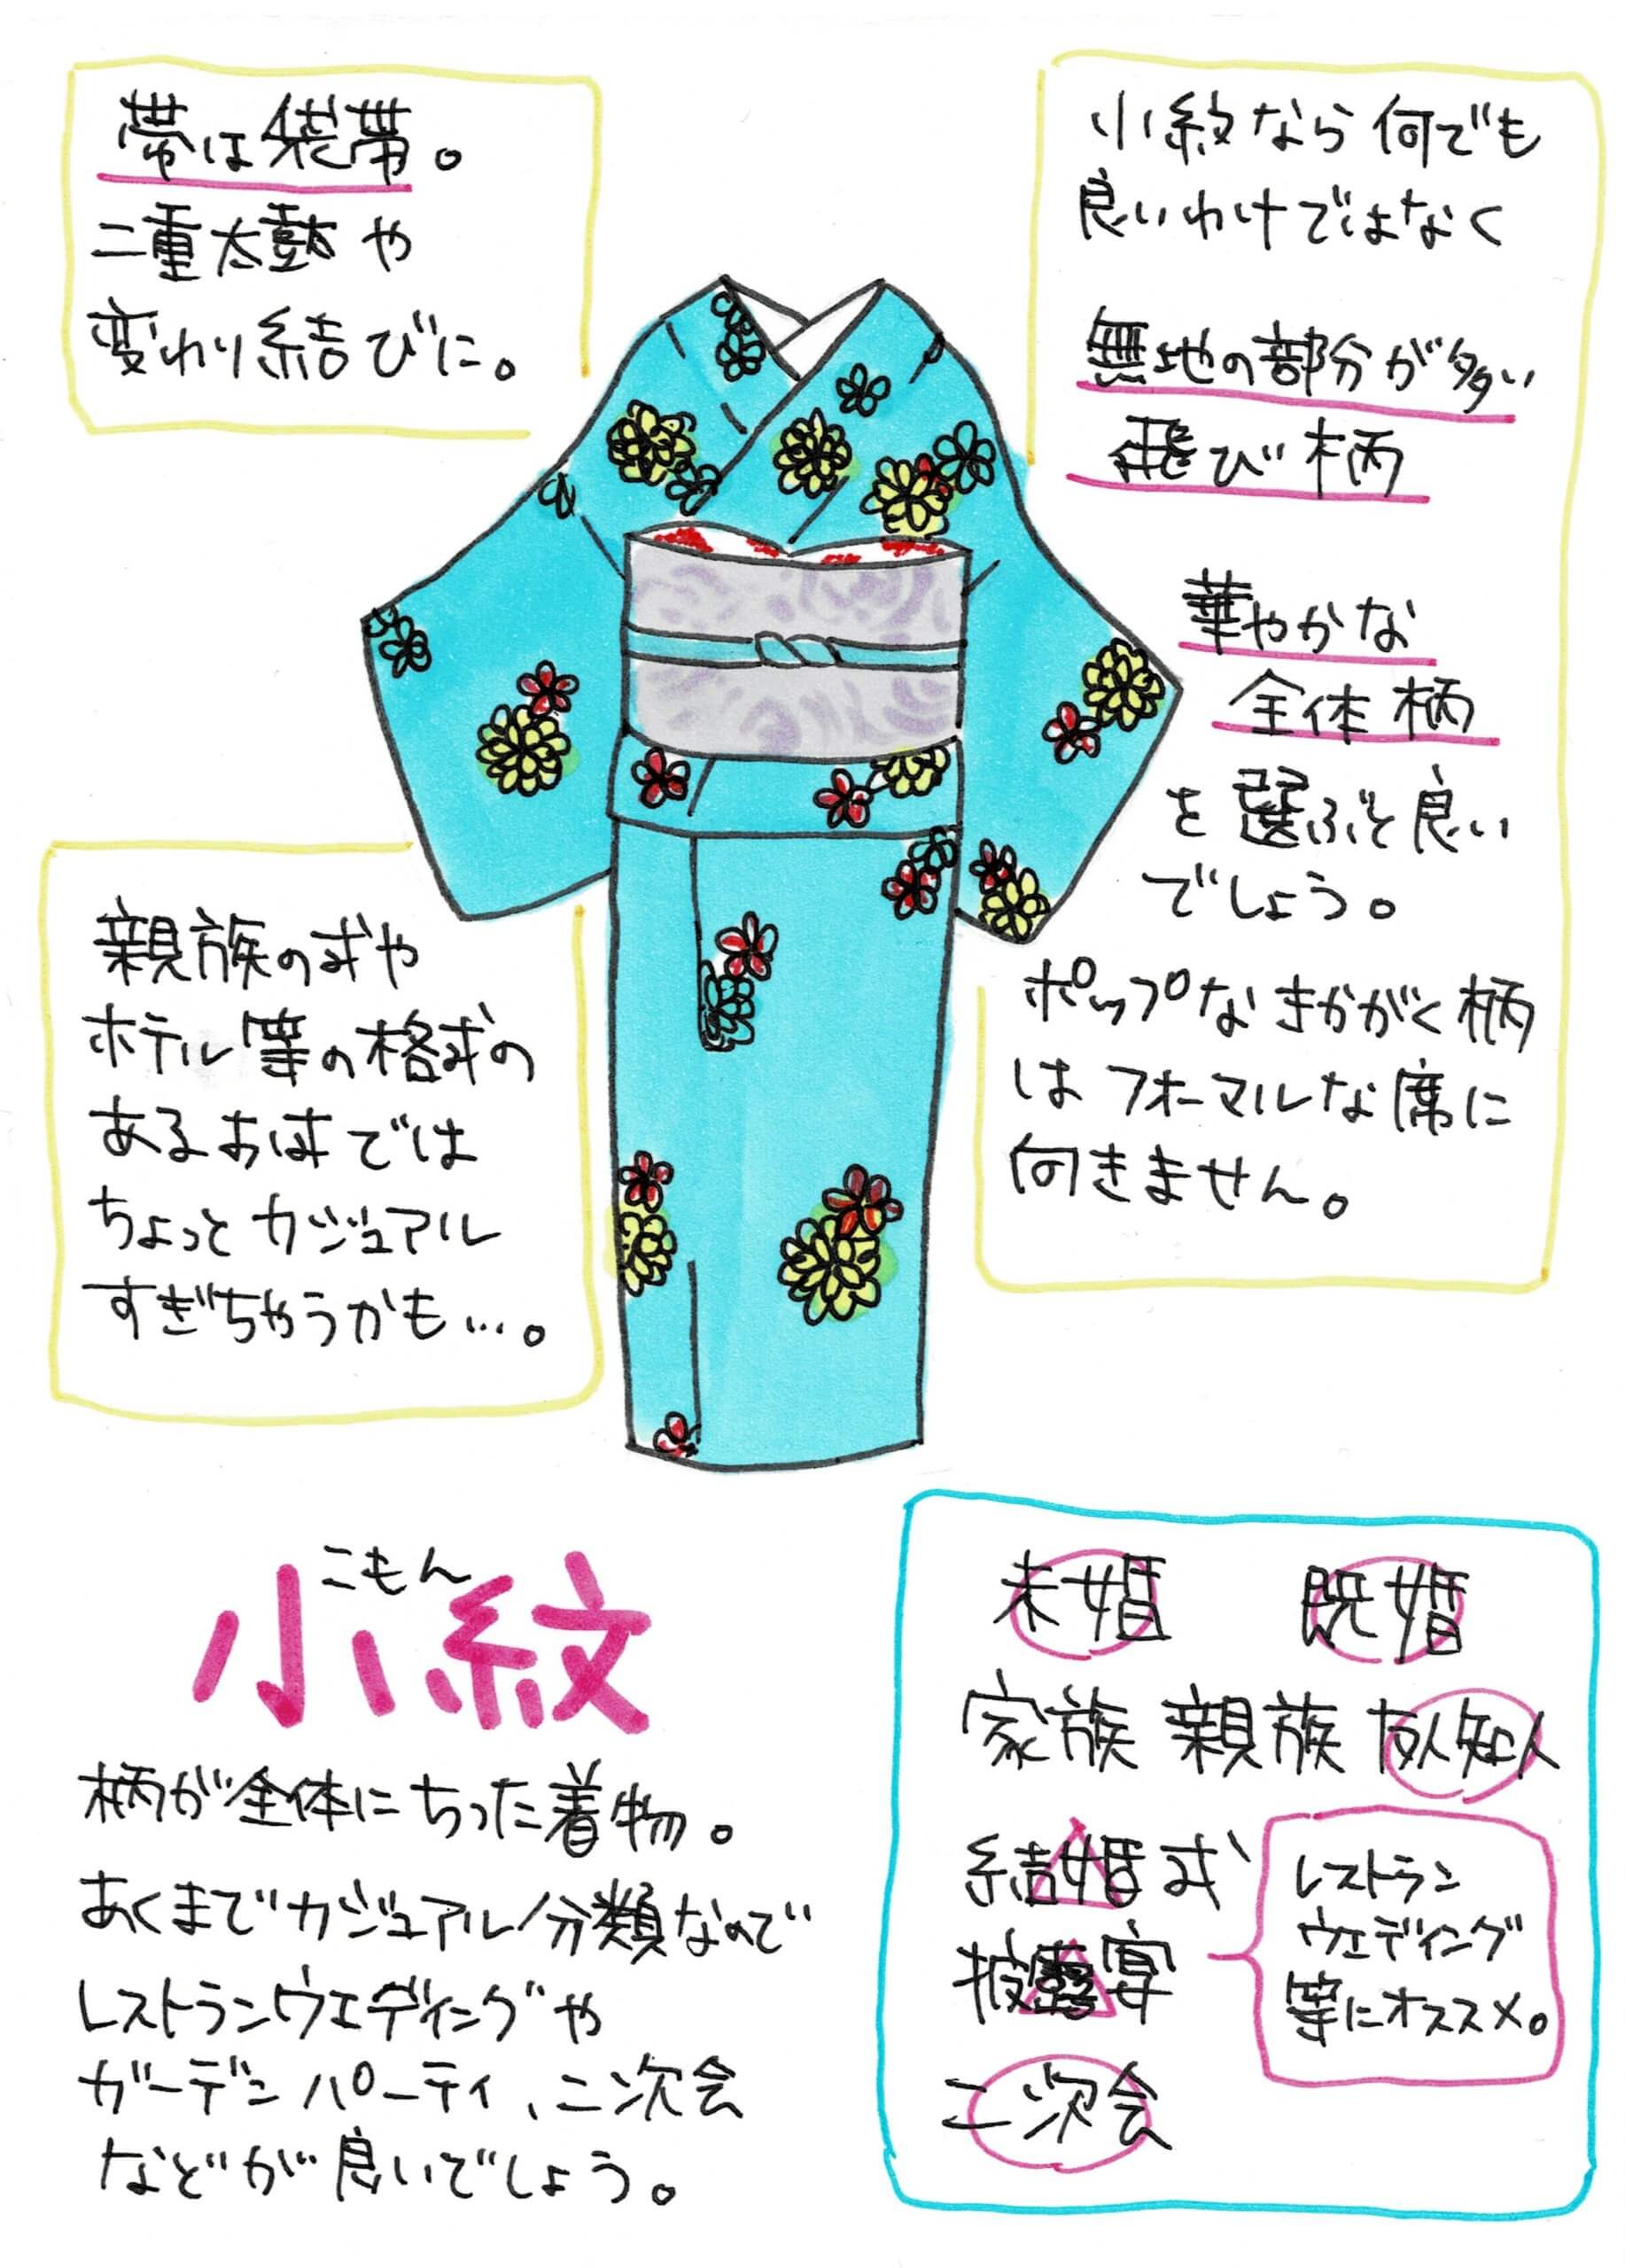 帯は袋帯。
二重太鼓や
変わり結びに。
小紋なら何でも
良いわけではなく
無地の部分が多い
飛び柄
華やかな
全体柄
を選ぶと良い
でしょう。
ポップなきかがく柄
はフォーマルな席に
向きません。
親族の式や
ホテル等の格式の
あるお席では
ちょっとカジュアル
すぎちゃうかも…。
こもん
小紋
柄が全体にちった着物。
あくまでカジュアル分類なので
レストランウエディングや
ガーデンパーティ、二次会
などが良いでしょう。
未婚 既婚
家族 親族 友人知人
結婚式
披露宴
二次会
レストラン
ウエディング
等にオススメ。